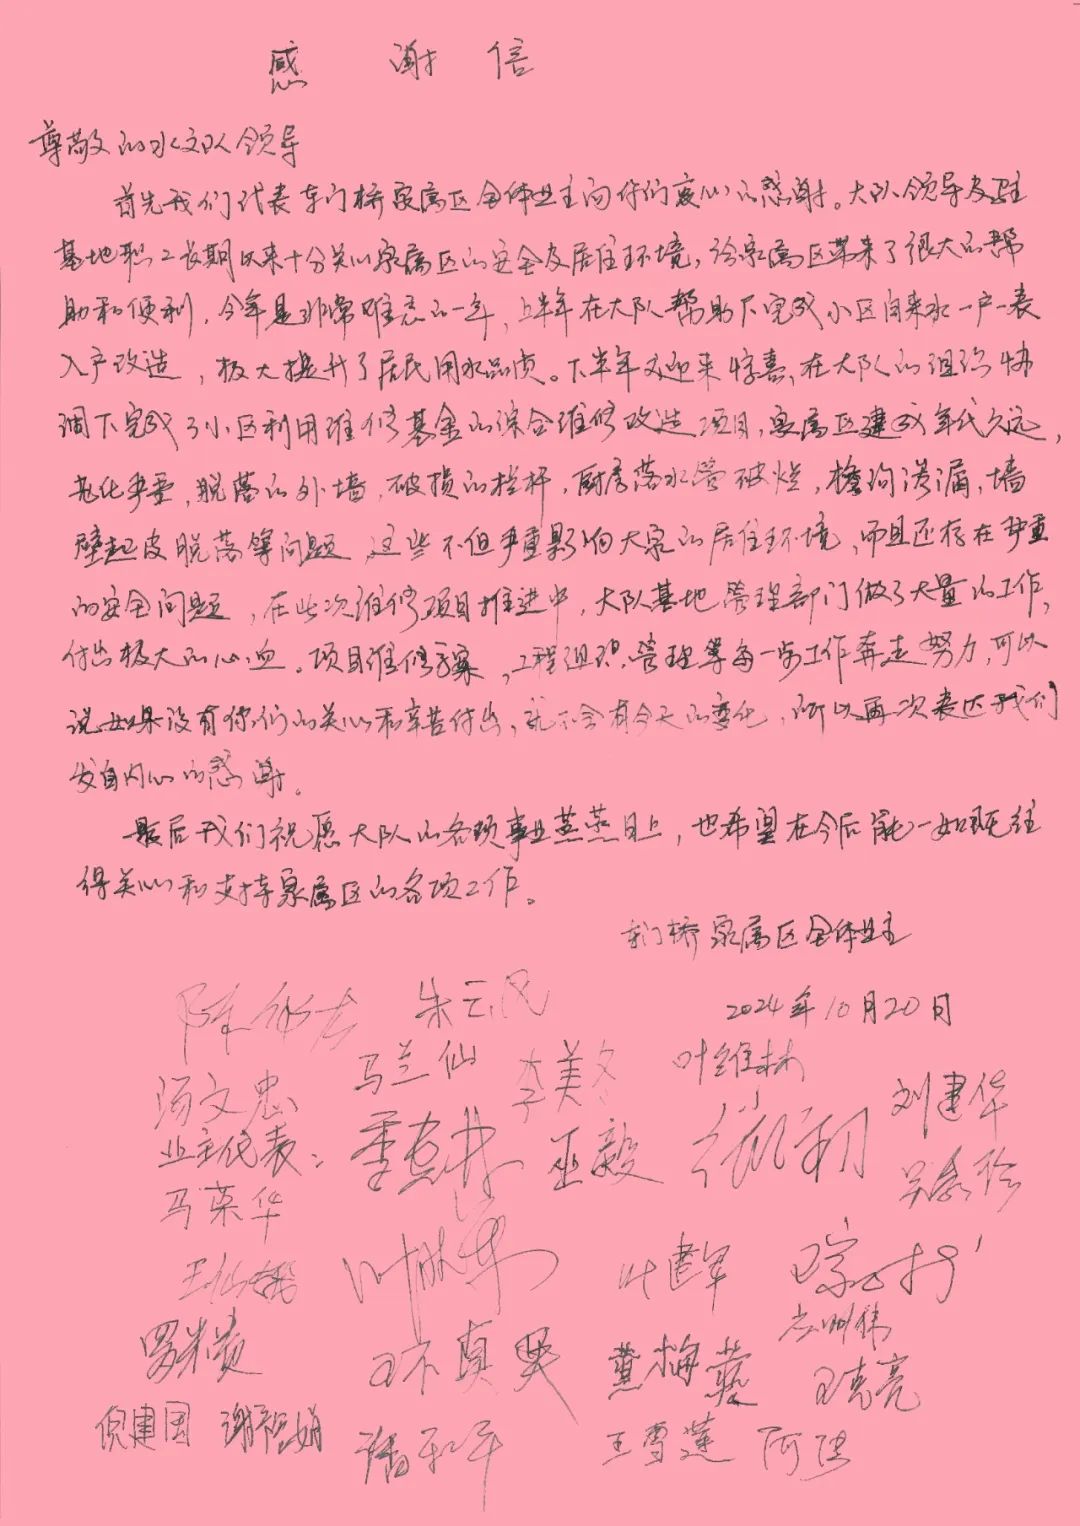 感谢信
尊敬的水文队领导
首先我们代表车门桥家属区全体业主向你们衷心的感谢。大队领导及驻
基地职工长期以来十分关心家属区的安全及居住环境,给家属区带来了很大的帮
助和便利,今年是非常难忘的一年,上半年在大队帮助下完成小区自来水一户一表
入户改造,极大提升了居民用水品质。下半年又迎来惊喜,在大队的组织协
调下完成了小区利用维修基金的综合维修改造项目,家属区建成年代久远,
老化严重,脱落的外墙,破损的栏杆,厨房落水管破烂,檐沟渗漏,墙
壁起皮脱落等问题,这些不但严重影响大家的居住环境,而且还存在严重
的安全问题,在此次维修项目推进中,大队基地管理部门做了大量的工作,
付出极大的心血。项目维修方案,工程组织,管理等每一步工作奔走努力,可以
说如果没有你们的关心和辛苦付出,就不会有今天的变化,所以再次表达我们
发自内心的感谢。
最后我们祝愿大队的各项事业蒸蒸日上,也希望在今后能一如既往
得关心和支持家属区的各项工作。
车门桥家属区全体业主
2024年10月20日
朱云凤
马兰仙 李美冬 叶维林
汤文忠 刘建华
业主代表: 巫毅
马荣华
叶建军
王雪莲
倪建国 潘和平